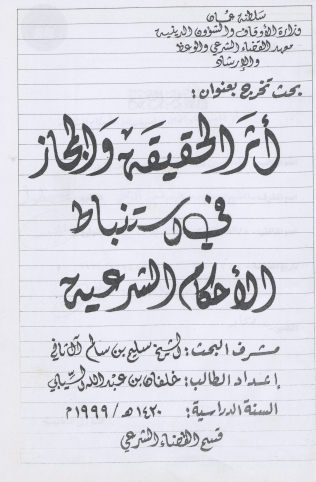 سلطنة عمان
وزارة الأوقاف والشؤون الدينية
معهد القضاء الشرعي والوعظ
والإرشاد
بحث تخرج بعنوان:
أثر الحقيقة والمجاز
في استنباط
الأحكام الشرعية
مشرف البحث: الشيخ سليم بن سالم آل ثاني
إعداد الطالب: خلفان بن عبدالله السيابي
السنة الدراسية: ١٤٢٠ه / ١٩٩٩م
قسم القضاء الشرعي